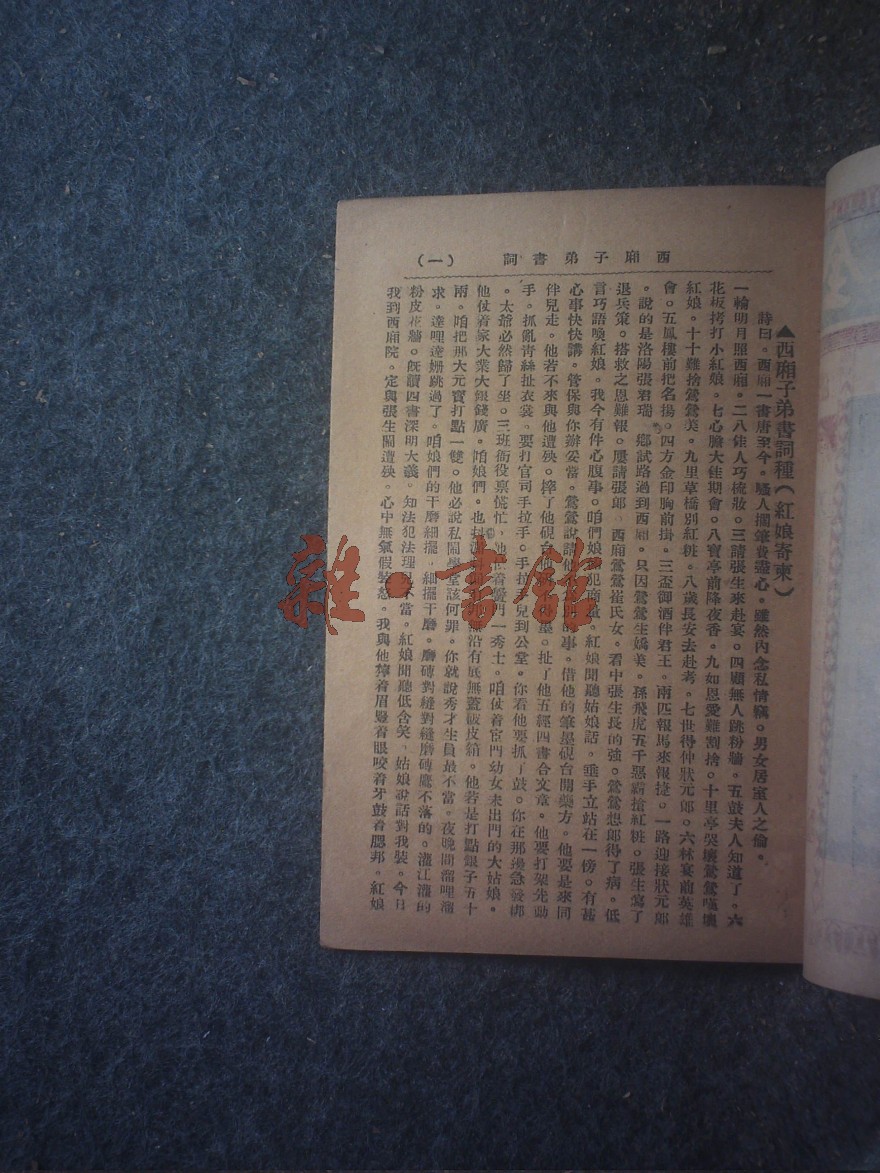 西廂子弟書詞 （一）
▲西廂子弟書詞種（紅娘寄柬）
詩曰。西廂一書唐至今。騷人擱筆費盡心。雖然內念私情竊。男女居室人之倫。
一輪明月照西廂。二八佳人巧梳妝。三請張生來赴宴。四顧無人跳粉牆。五鼓夫人知道了。六
花板拷打小紅娘。七心膽大佳期會。八寶亭前降夜香。九如恩愛難割捨。十里亭哭壞鶯鶯嘆壞
紅娘。十十難捨鶯鶯美。九里草橋別紅粧。八歲長安去赴考。七世得仲狀元郎。六林宴前英雄
會。五鳳樓前把名揚。四方金印胸前掛。三盃御酒伴君王。兩匹報馬來報捷。一路迎接狀元郎
。說的是洛陽張君瑞。鄉試路過到西廂。只因鶯鶯生嬌美。孫飛虎五千惡霸搶紅粧。張生寫了
退兵策。搭救之恩難報。屢請張郎 西廂鶯鶯崔氏女。看中張生長的強。鶯鶯想郎得了病。低
言巧語喚紅娘。我今有件心腹事。咱們娘 犯商量。紅娘聞聽姑娘話。垂手立站在一傍。有甚
心事快快講。管保與你辦妥當。鶯鶯說請他 的事。借他的筆墨硯台開藥方。他要是來同
伴兒走。他若不來與他遭殃。摔了他硯台 墨。扯了他五經四書合文章。他要打架先動
手。抓亂青絲扯衣裳。要打官司手拉手。手拉 兒到公堂。你看他要抓 鼓。你在那邊急發梆
。太爺必然歸了坐。三班衙役禀慌忙。他仗着黌門一秀士。咱仗着官門幼女未出門的大姑娘。
他仗着家大業大銀錢廣。咱娘們。也 無沿有底無蓋破皮箱。他若是打點銀子五十
兩。咱把那大元寶打點一雙。他必說私闖學堂該何罪。你就說秀才生員最不當。夜晚間溜哩溜
求。達哩達姍跳過了。咱娘們的干磨細擺。細擺干磨。磨磚對縫對縫磨磚鷹不落的。灌江灌的
粉皮花牆。旣讀四書深明大義。知法犯法理 不當。紅娘聞聽低含笑。姑娘說話對我裝。今日
我到西廂院。定與張生鬧遭殃。心中無氣假裝怒。我與他擰着眉瞪着眼咬着牙鼓着腮邦。紅娘
雜·書館